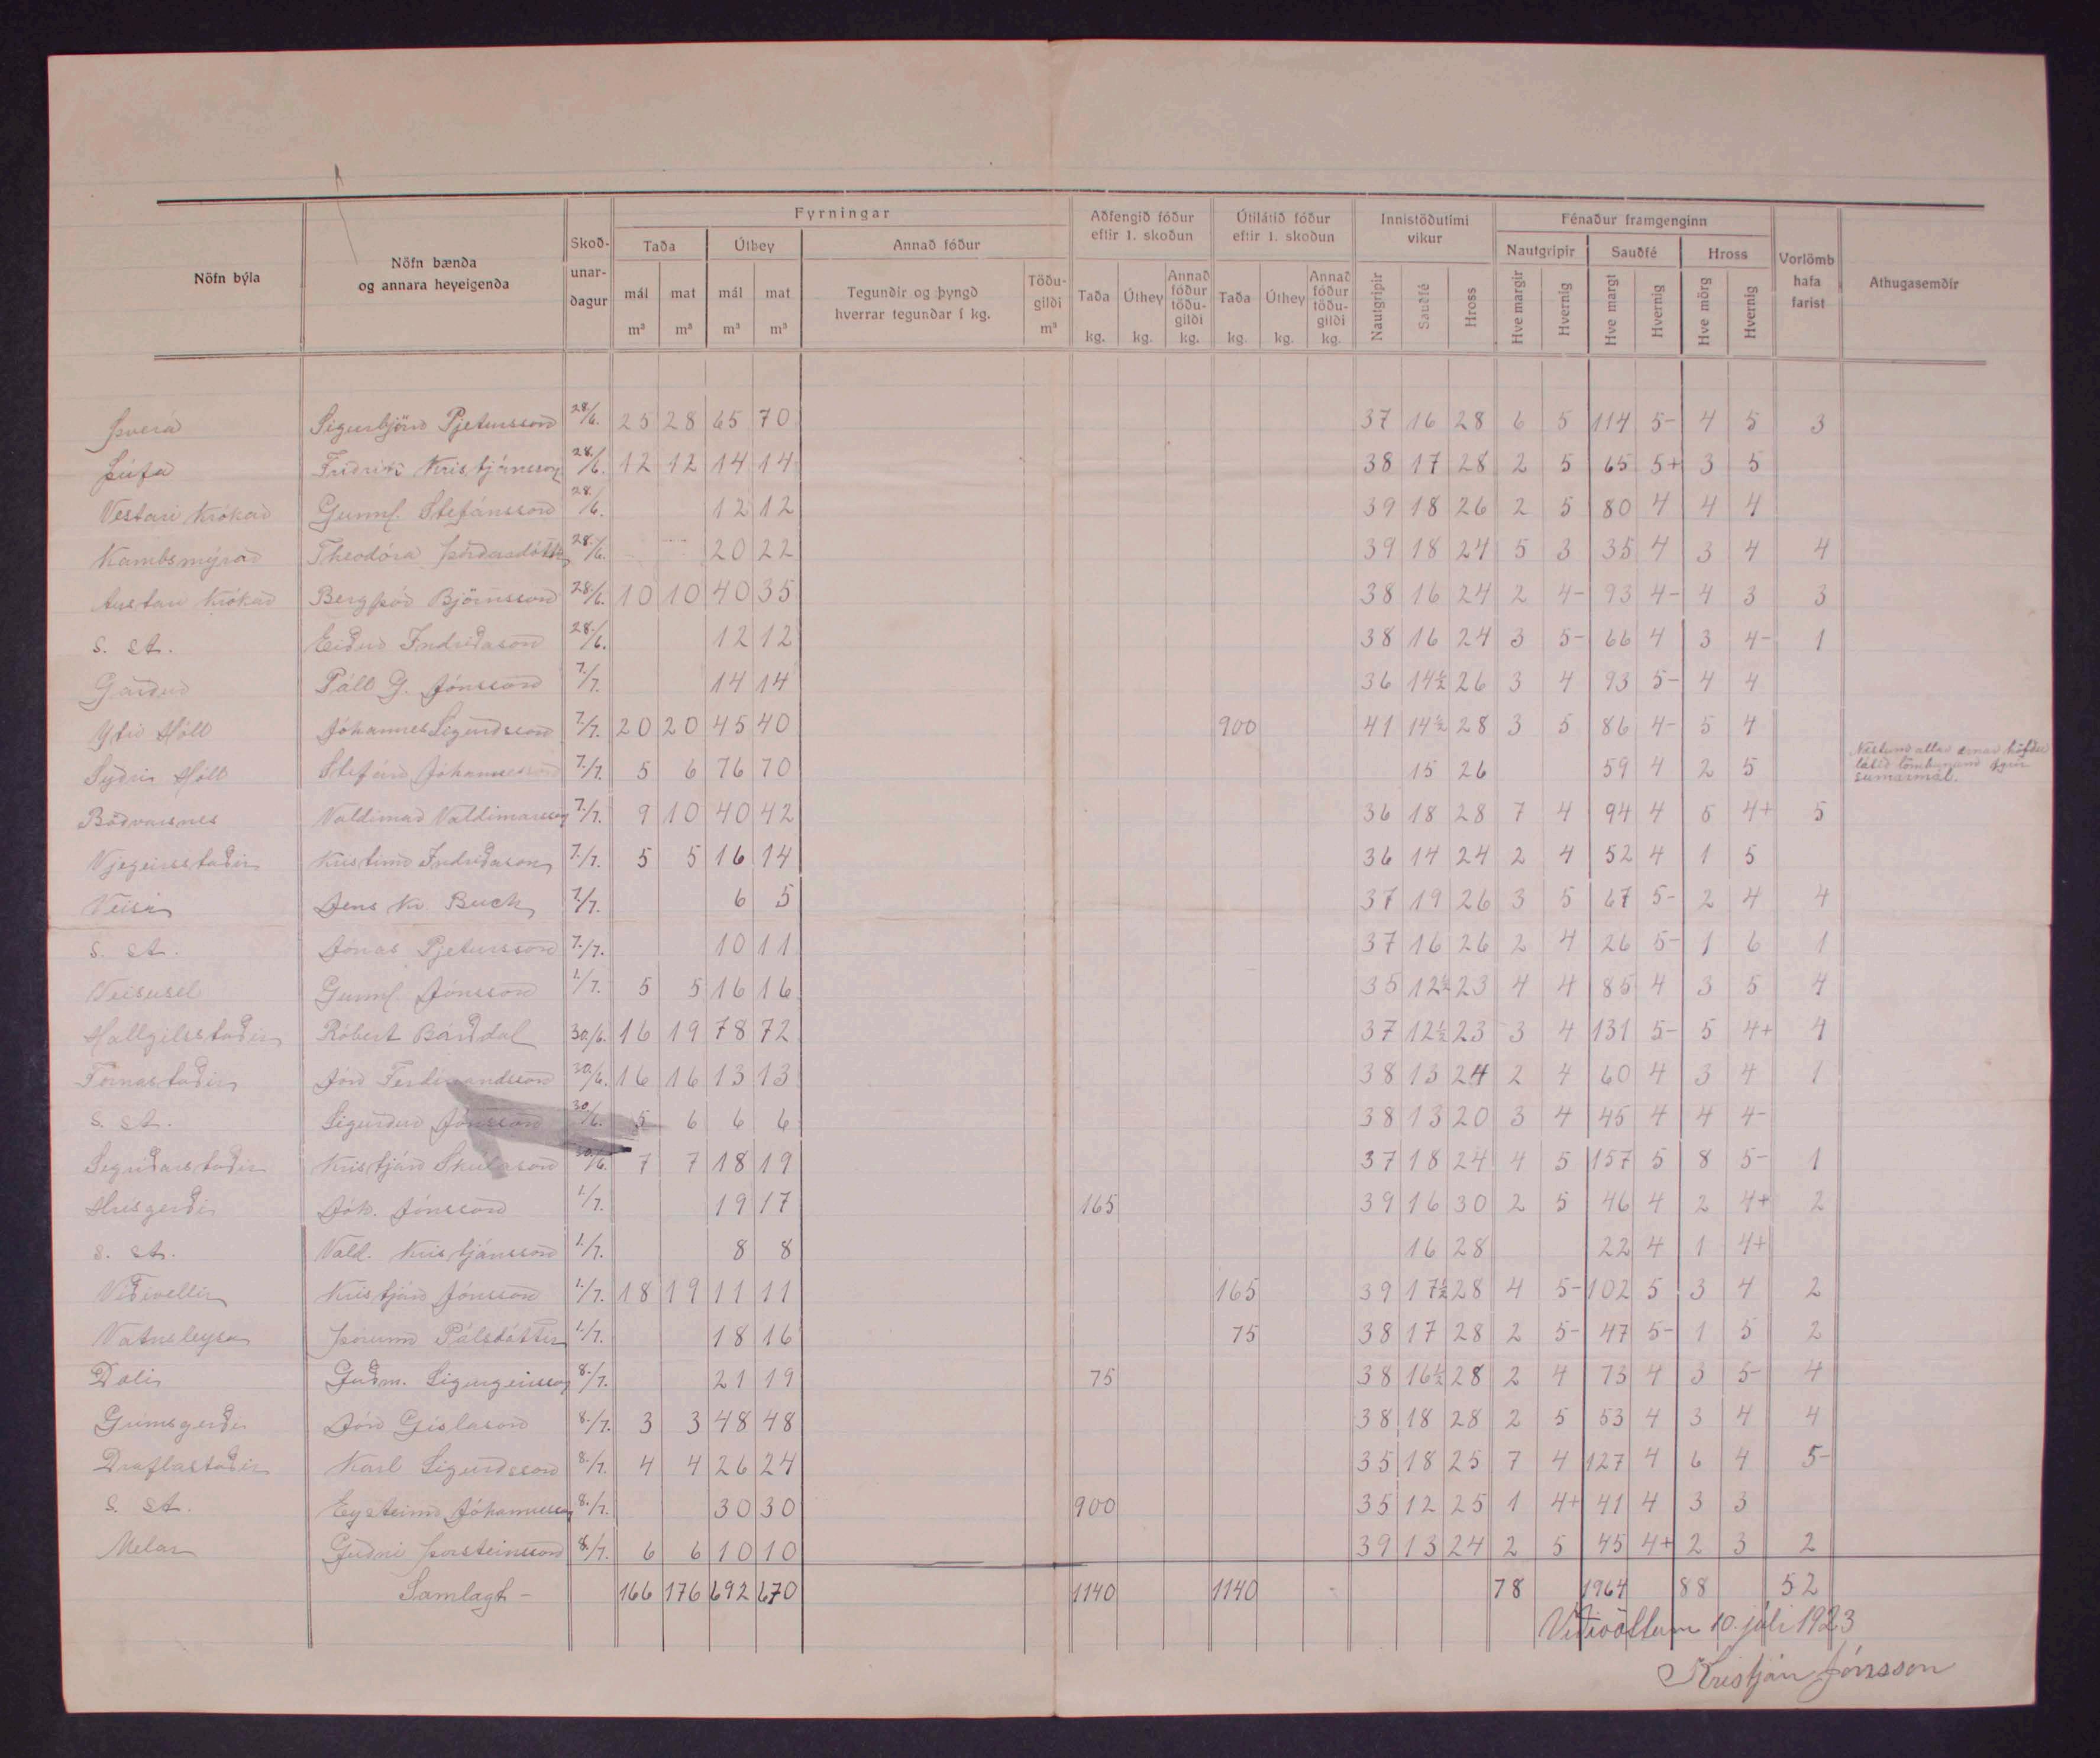 Nöfn býla | Nöfn bænda og annara heyeigenda | Skoð-unar-dagur | Fyrningar | Aðfengið fóður eftir 1. skoðun | Útilátið fóður eftir 1. skoðun | Innistöðutími vikur | Fénaður framgenginn | Vorlömb hafa farist | Athugasemdir
Taða | Úthey | Annað fóður | Nautgripir | Sauðfé | Hross
mál m³ | mat m³ | mál m³ | mat m³ | Tegundir og þyngd hverrar tegundar í kg. | Töðu-gildi m³ | Taða kg. | Úthey kg. | Annað fóður töðu-gildi kg. | Taða kg. | Úthey kg. | Annað fóður töðu-gildi kg. | Nautgripir | Sauðfé | Hross | Hve margir | Hvernig | Hve margt | Hvernig | Hve mörg | Hvernig
Þverá Sigurbjörn Pjetursson 28/6. 25 28 65 70 37 16 28 6 5 114 5- 4 5 3
Þúfa Friðrik Kristjánsson 28./6. 12 12 14 14 38 17 28 2 5 65 5+ 3 5
Vestari Krókar Gunnl. Stefánsson 28./6. 12 12 39 18 26 2 5 80 4 4 4
Kambsmýrar Theodóra Þórðardóttir 28./6. 20 22 39 18 24 5 3 35 4 3 4 4
Austari Krókar Bergþór Björnsson 28/6. 10 10 40 35 38 16 24 2 4- 93 4- 4 3 3
s. st. Eiður Indriðason 28./6. 12 12 38 16 24 3 5- 66 4 3 4- 1
Garður Páll G. Jónsson 7./7. 14 14 36 14½ 26 3 4 93 5- 4 4
Ytri Hóll Jóhannes Sigurðsson 7./7. 20 20 45 40 900 41 14½ 28 3 5 86 4- 5 4
Syðri Hóll Stefán Jóhannesson 7./7. 5 6 76 70 15 26 59 4 2 5 Næstum allar ærnar höfðu látið lömbunum fyrir sumarmál.
Böðvarsnes Valdimar Valdimarsson 7./7. 9 10 40 42 36 18 28 7 4 94 4 5 4+ 5
Vjegeirsstaðir Kristinn Indriðason 7./7. 5 5 16 14 36 14 24 2 4 52 4 1 5
Veisa Jens Kr. Buch 7./7. 6 5 37 19 26 3 5 67 5- 2 4 4
s. st. Jónas Pjetursson 7./7. 10 11 37 16 26 2 4 26 5- 1 6 1
Veisusel Gunnl. Jónsson 1./7. 5 5 16 16 35 12½ 23 4 4 85 4 3 5 4
Hallgilsstaðir Róbert Bárðdal 30./6. 16 19 78 72 37 12½ 23 3 4 131 5- 5 4+ 4
Fornastaðir Jón Ferdinandsson 30./6. 16 16 13 13 38 13 24 2 4 60 4 3 4 1
s. st. Sigurður Jónsson 30/6. 5 6 6 6 38 13 20 3 4 45 4 4 4-
Sigríðarstaðir Kristján Skúlason 30./6. 7 7 18 19 37 18 24 4 5 157 5 8 5- 1
Hrísgerði Jóh. Jónsson 1./7. 19 17 165 39 16 30 2 5 46 4 2 4+ 2
s. st. Vald. Kristjánsson 1./7. 8 8 16 28 22 4 1 4+
Víðivellir Kristján Jónsson 1./7. 18 19 11 11 165 39 17½ 28 4 5- 102 5 3 4 2
Vatnsleysa Þórunn Pálsdóttir 1./7. 18 16 75 38 17 28 2 5- 47 5- 1 5 2
Dalir Guðm. Sigurgeirsson 8./7. 21 19 75 38 16½ 28 2 4 73 4 3 5- 4
Grímsgerði Jón Gíslason 8./7. 3 3 48 48 38 18 28 2 5 53 4 3 4 4
Draflastaðir Karl Sigurðsson 8./7. 4 4 26 24 35 18 25 7 4 127 4 6 4 5-
s. st. Eysteinn Jóhannesson 8./7. 30 30 900 35 12 25 1 4+ 41 4 3 3
Melar Guðni Þorsteinsson 8./7. 6 6 10 10 39 13 24 2 5 45 4+ 2 3 2
Samlagt - 166 176 692 670 1140 1140 78 1964 88 52
Víðivöllum 10. júlí 1923
Kristján Jónsson